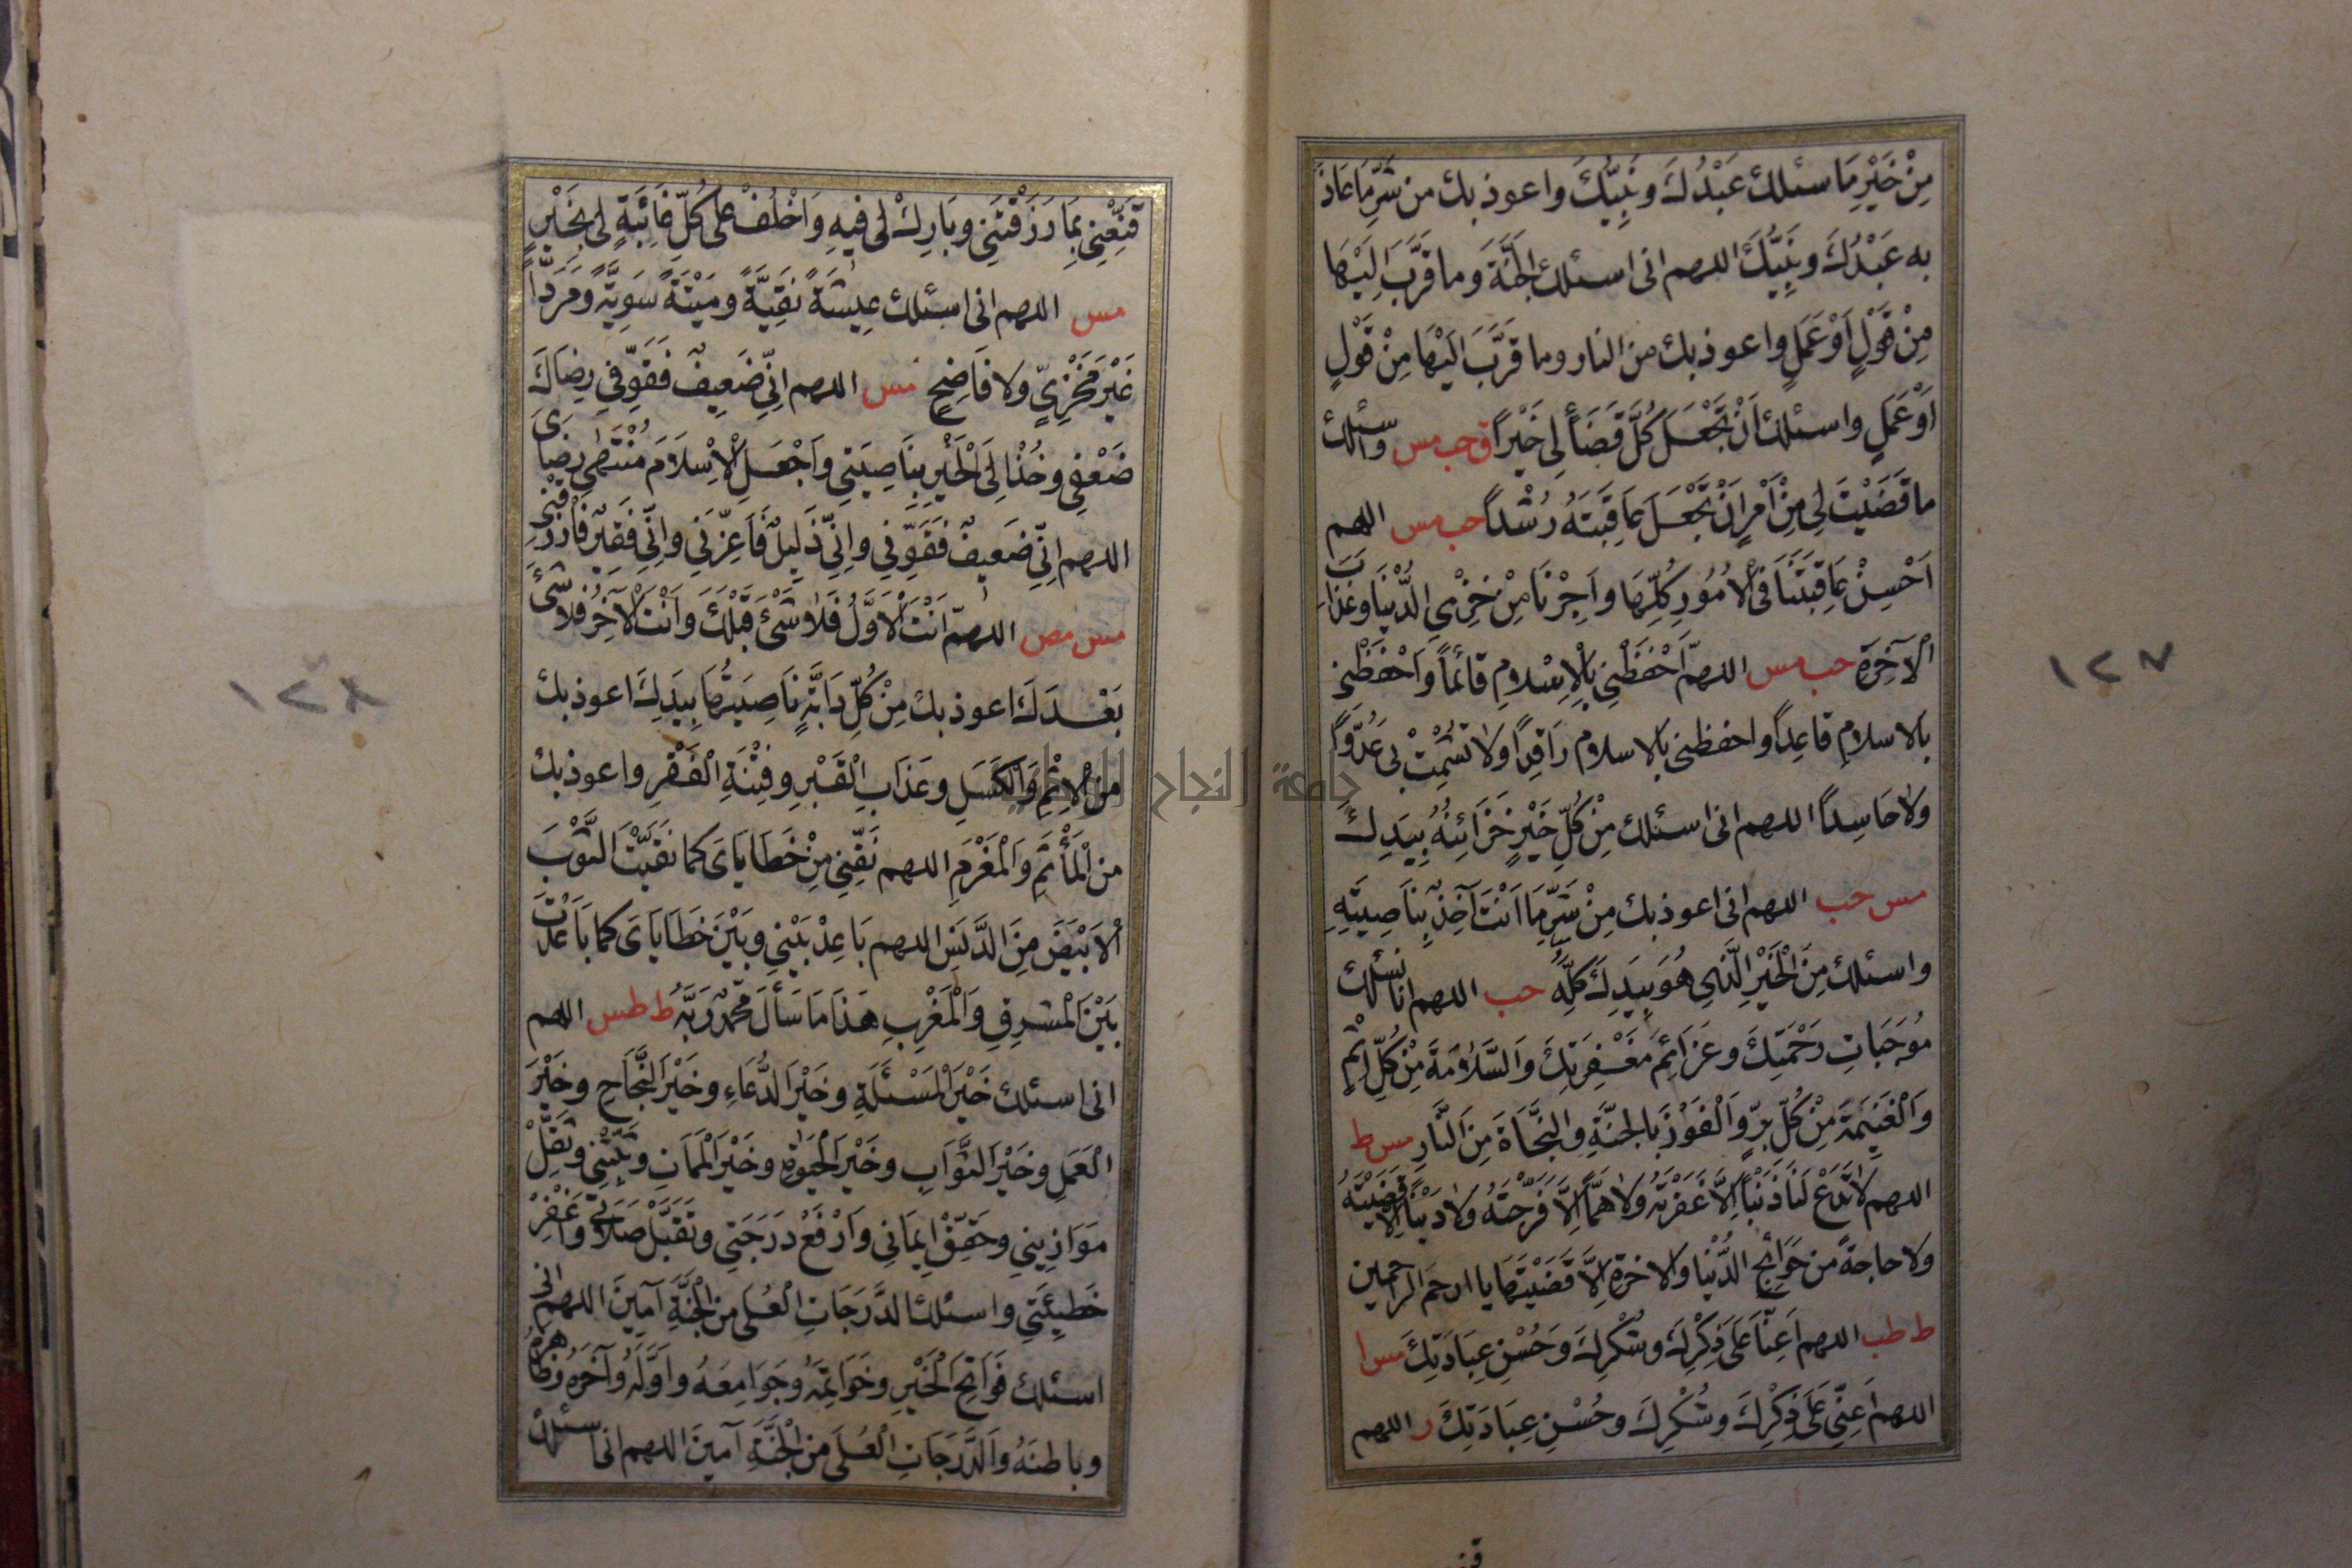 مِنْ خَيْرِ مَا سئلك عَبْدُكَ وَنَبِيُّكَ واعوذ بك من شَرِّ مَا عَاذَ
به عَبْدُكَ ونَبِيُّكَ اللهم انى اسئلك الجَنَّةَ وما قَرَّبَ اِلَيْهَا
مِنْ قَوْلٍ اَوْ عَمَلٍ واعوذ بك من النار وما قَرَّبَ اليْهَا مِنْ قَوْلٍ
اَوْ عَمَلٍ واسئلك اَنْ تَجْعَلَ كُلَّ قَضَاءٍ لِى خَيْرًا ق حب مس واسئلك
ما قَضَيْتَ لِى مِنْ اَمْرٍ اَنْ تَجْعَلَ عَاقِبَتَهُ رُشْداً حب مس اللهم
اَحْسِنْ عَاقِبَتَنَا فى الْاُمُورِ كُلِّهَا واَجِرْنَا مِنْ خِزْىِ الدُّنْيَا وعَذَابِ
الْآخِرَةِ حب مس اللهمّ اَحْفَظْنِى بِالْاِسْلامِ قائماً وَاَحْفَظْنِى
بالاسلامِ قاعِداً واحفظنى بالاسلام رَاقِدًا ولا تُشْمِتْ بى عَدُوًّا
ولا حَاسِداً اللهم انى اسئلك مِنْ كُلِّ خَيْرٍ خَزَائِنُهُ بِيَدِكَ
مس حب اللهم انى اعوذ بك مِنْ شَرِّ مَا اَنْتَ آخِذٌ بِنَاصِيَتِهِ
واسئلك مِنَ الْخَيْرِ الَّذِى هُوَ بِيَدِكَ كُلِّهِ حب اللهم انا نسئلك
مُوجَبَاتِ رَحْمَتِكَ وعَزَائِمَ مَغْفِرَتِكَ وَالسَّلَامَةَ مِنْ كُلِّ اِثْمٍ
وَالْغَنِيمَةَ مِنْ كُلِّ بِرٍّ وَالْفَوْزَ بالجَنَّةِ والنَّجَاةَ مِنَ النَّارِ مس ط
اللهم لا تَدَعْ لَنَا ذَنْباً اِلَّا غَفَرْتَهُ ولا هَمًّا اِلَّا فَرَّجْتَهُ ولا دَيْناً اِلَّا قَضَيْتَهُ
ولا حاجةً من حَوَائِجِ الدُّنْيَا والاخرة اِلَّا قَضَيْتَهَا يا ارحمَ الراحمين
ط طب اللهم اَعِنَّا عَلَى ذِكْرِكَ وشُكْرِكَ وَحُسْنِ عِبَادَتِكَ مس ا
اللهم اَعِنِّى عَلَى ذِكْرِكَ وشُكْرِكَ وحُسْنِ عِبَادَتِكَ ر اللهم
١٢٧
قَنِّعْنِى بِمَا رَزَقْتَنِى وبَارِكْ لى فِيهِ وَاَخْلُفْ عَلى كُلِّ غَائِبَةٍ لِى بِخَيْرٍ
مس اللهم انى اسئلك عِيشَةً نَقِيَّةً ومَيْتَةً سَوِيَّةً ومَرَدًّا
غَيْرَ مَخْزِىٍّ ولا فَاضِحٍ مس اللهم اِنِّى ضَعِيفٌ فَقَوِّ فِى رِضَاكَ
ضَعْفِى وخُذْ اِلَى الْخَيْرِ بِنَاصِيَتِى واَجْعَلِ الْاِسْلَامَ مُنْتَهَى رِضَاىَ
اللهم اِنِّى ضَعِيفٌ فَقَوِّنِى واِنِّى ذَلِيلٌ فَاَعِزَّنِى واِنِّى فَقِيرٌ فَارْزُقْنِى
مس مص اللهمّ اَنْتَ الْاَوَّلُ فَلَا شَىْءَ قَبْلَكَ وَاَنْتَ الْآخِرُ فَلا شَىْءَ
بَعْدَكَ اعوذ بك مِنْ كُلِّ دَابَّةٍ نَاصِيَتُهَا بِيَدِكَ اعوذ بك
من الْاِثْمِ وَالْكَسَلِ وعَذَابِ الْقَبْرِ وفِتْنَةِ الْفَقْرِ واعوذ بك
من الْمَأْثَمِ وَالْمَغْرَمِ اللهم نَقِّنِى مِنْ خَطَايَاىَ كما نَقَّيْتَ الثَّوْبَ
الْاَبْيَضَ مِنَ الدَّنَسِ اللهم بَاعِدْ بَيْنِى وبَيْنَ خَطَايَاىَ كما بَاعَدْتَ
بَيْنَ الْمَشْرِقِ وَالْمَغْرِبِ هَذَا مَا سَأَلَ مُحَمَّدٌ رَبَّهُ ط طس اللهم
انى اسئلك خَيْرَ الْمَسْئَلَةِ وخَيْرَ الدُّعَاءِ وخَيْرَ النَّجَاحِ وخَيْرَ
الْعَمَلِ وخَيْرَ الثَّوَابِ وخَيْرَ الْحَيٰوةِ وخَيْرَ الْمَمَاتِ وثَبِّتْنِى وثَقِّلْ
مَوَازِينِى وحَقِّقْ اِيمَانِى وارْفَعْ دَرَجَتِى وتَقَبَّلْ صَلَاتِى وَاغْفِرْ
خَطِيئَتِى واسئلك الدَّرَجَاتِ الْعُلى من الْجَنَّةِ آمِينَ اللهم انى
اسئلك فَوَاتِحَ الْخَيْرِ وخَوَاتِمَهُ وجَوَامِعَهُ واَوَّلَهُ وآخِرَهُ وظَاهِرَهُ
وباطنَهُ والدَّرَجَاتِ الْعُلَى من الْجَنَّةِ آمينَ اللهم انى اسئلك
١٢٨
جامعة النجاح